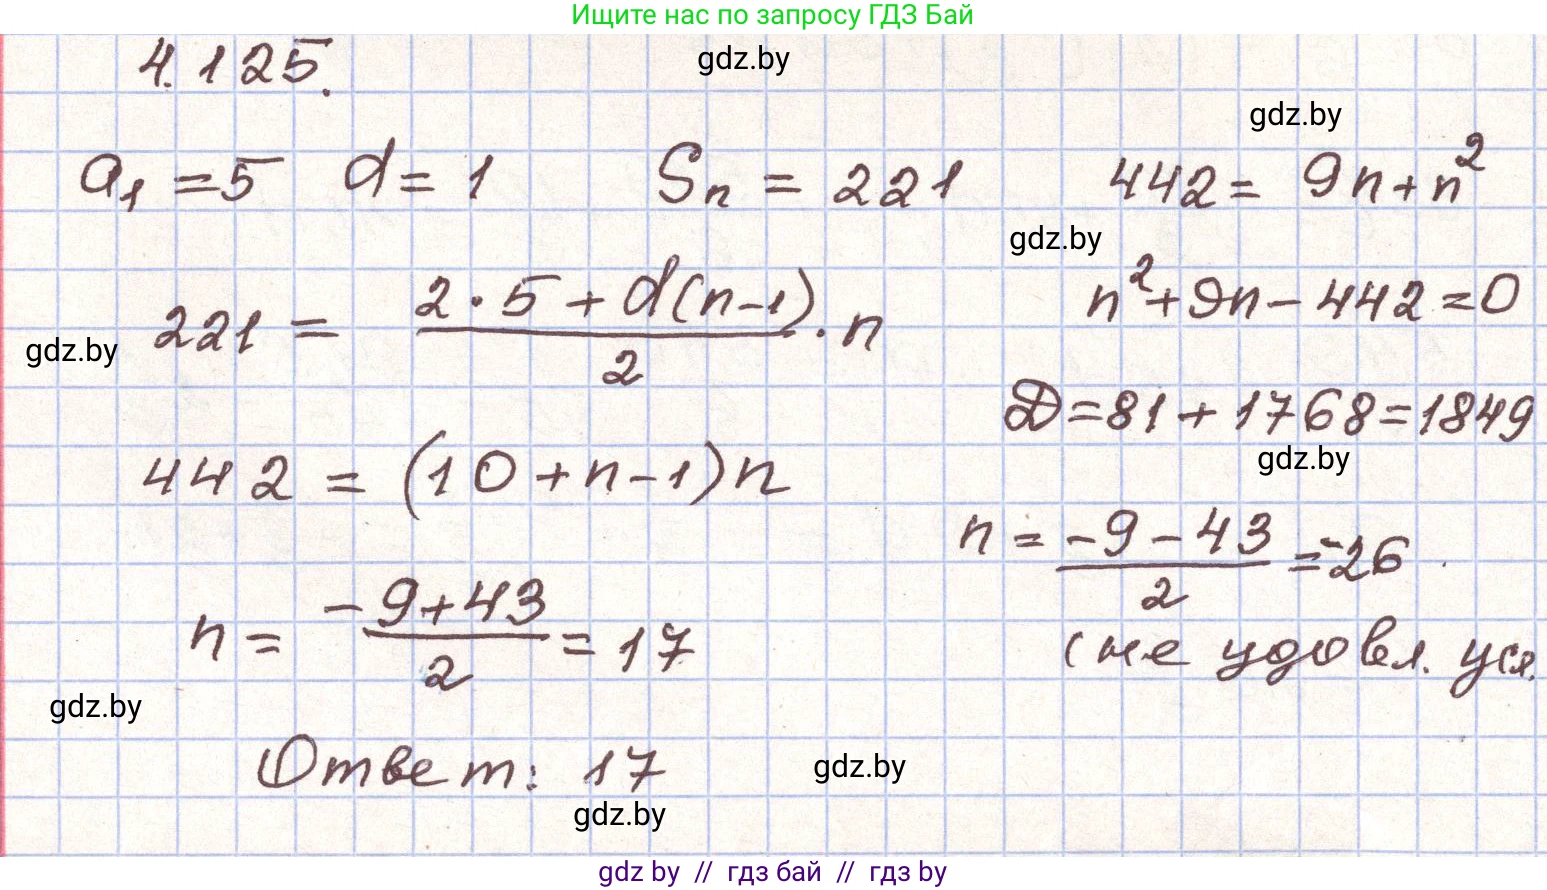 Ищите нас по запросу ГДЗ Бай
4.125.
gdz.by
gdz.by
a₁ = 5 d = 1 Sₙ = 221
221 = (2·5 + d(n-1))/2 · n
gdz.by
442 = (10 + n - 1)n
442 = 9n + n²
gdz.by
n² + 9n - 442 = 0
D = 81 + 1768 = 1849
gdz.by
n = (-9 - 43)/2 = -26
(не удовл. усл.
n = (-9 + 43)/2 = 17
gdz.by
Ответ: 17
gdz.by
gdz.by
gdz by // гдз бай // гдз by